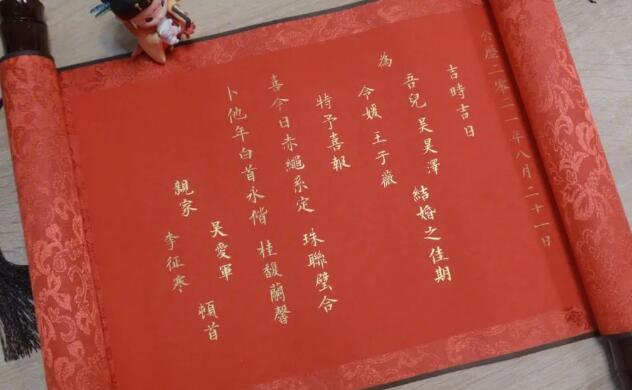 公歷二零二一年八月二十一日
吉時吉日
吾兒 吴昊澤 結婚之佳期
為 令媛 王子薇
特予喜報
喜今日赤繩系定 珠聯璧合
卜他年白首永偕 桂馥蘭馨
吴愛軍 頓首
親家 李征寒